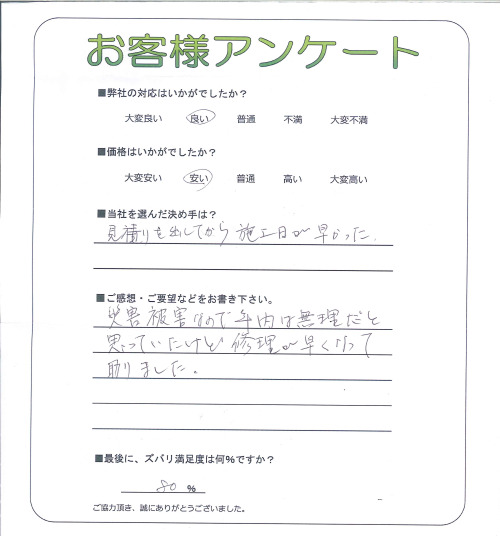 お客様アンケート
■弊社の対応はいかがでしたか？
大変良い 良い 普通 不満 大変不満
■価格はいかがでしたか？
大変安い 安い 普通 高い 大変高い
■当社を選んだ決め手は？
見積りを出してから施工日が早かった.
■ご感想・ご要望などをお書き下さい。
災害被害なので年内は無理だと
思っていたけど修理が早くなって
助りました。
■最後に、ズバリ満足度は何％ですか？
80 ％
ご協力頂き、誠にありがとうございました。